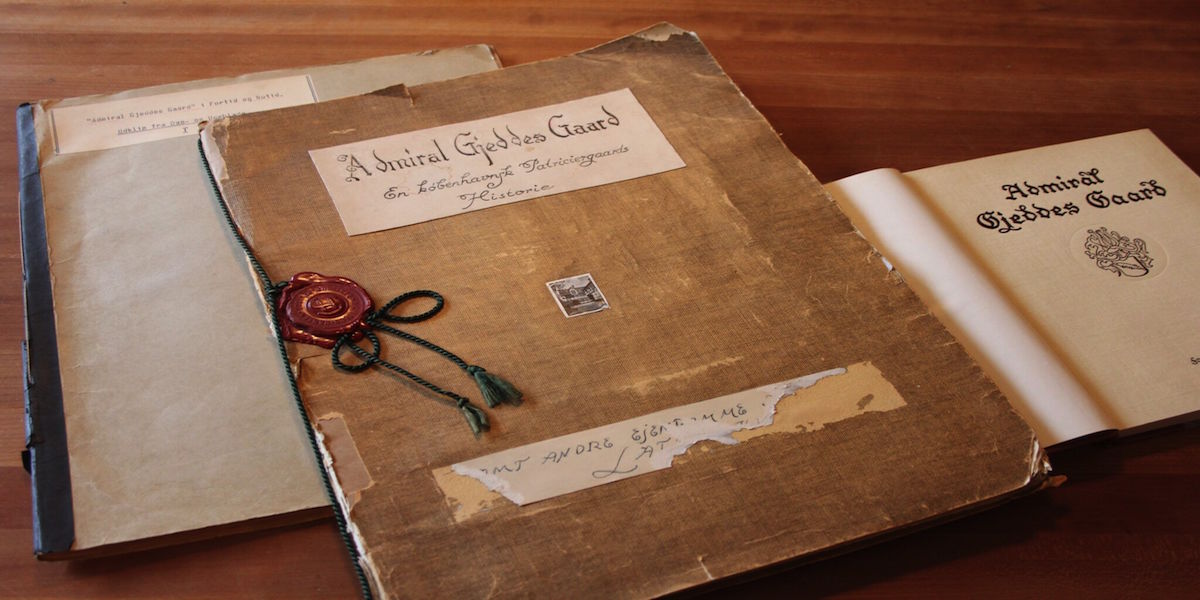 "Admiral Gjeddes Gaard" i Fortid og Nutid.
Udklip fra Dag- og
I
Admiral Gjeddes Gaard
En københavnsk Patriciergaards
Historie
ANDRE
LAT
Admiral
Gjeddes Gaard